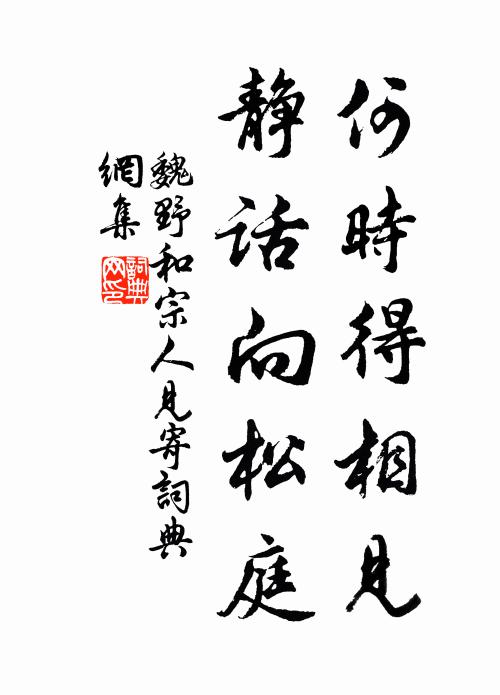 何時得相見
静話向松庭
魏野和宗人見寄詞典
網集
詞典網印